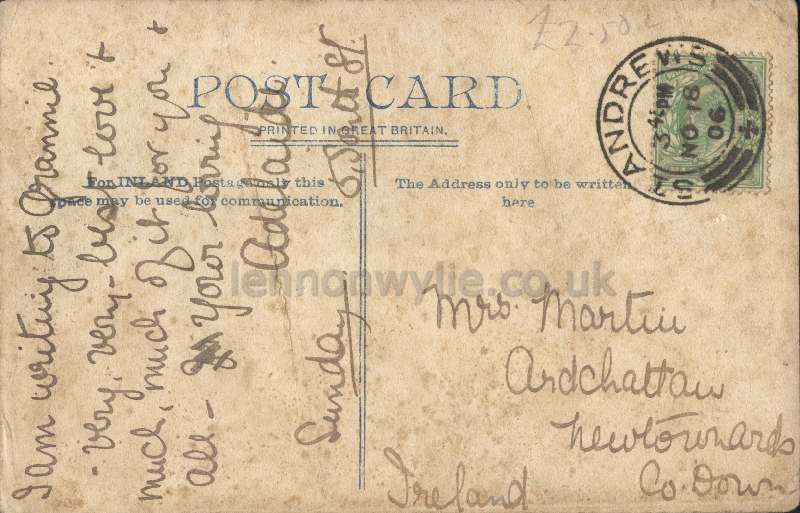 £2.50
POST CARD.
PRINTED IN GREAT BRITAIN.
For INLAND Postage only this
space may be used for communication.
The Address only to be written
here
ST ANDREWS
3.45 PM
NO 18
06
I am writing to Grannie.
- very, very- best love &
much, much of it for you &
all - Your loving
Adelaide
Sunday
6 South St.
Mrs. Martin
Ardchattan
Newtownards
Co. Down
Ireland
lennonwylie.co.uk